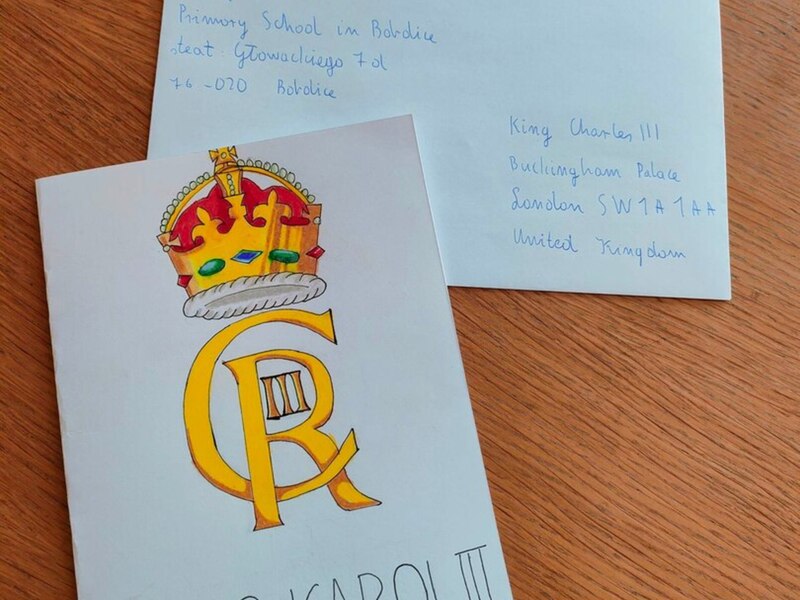 Primary School in Bobolice
Głowackiego 7d
76-020 Bobolice
King Charles III
Buckingham Palace
London SW1A 1AA
United Kingdom
CR
III
KAROL III